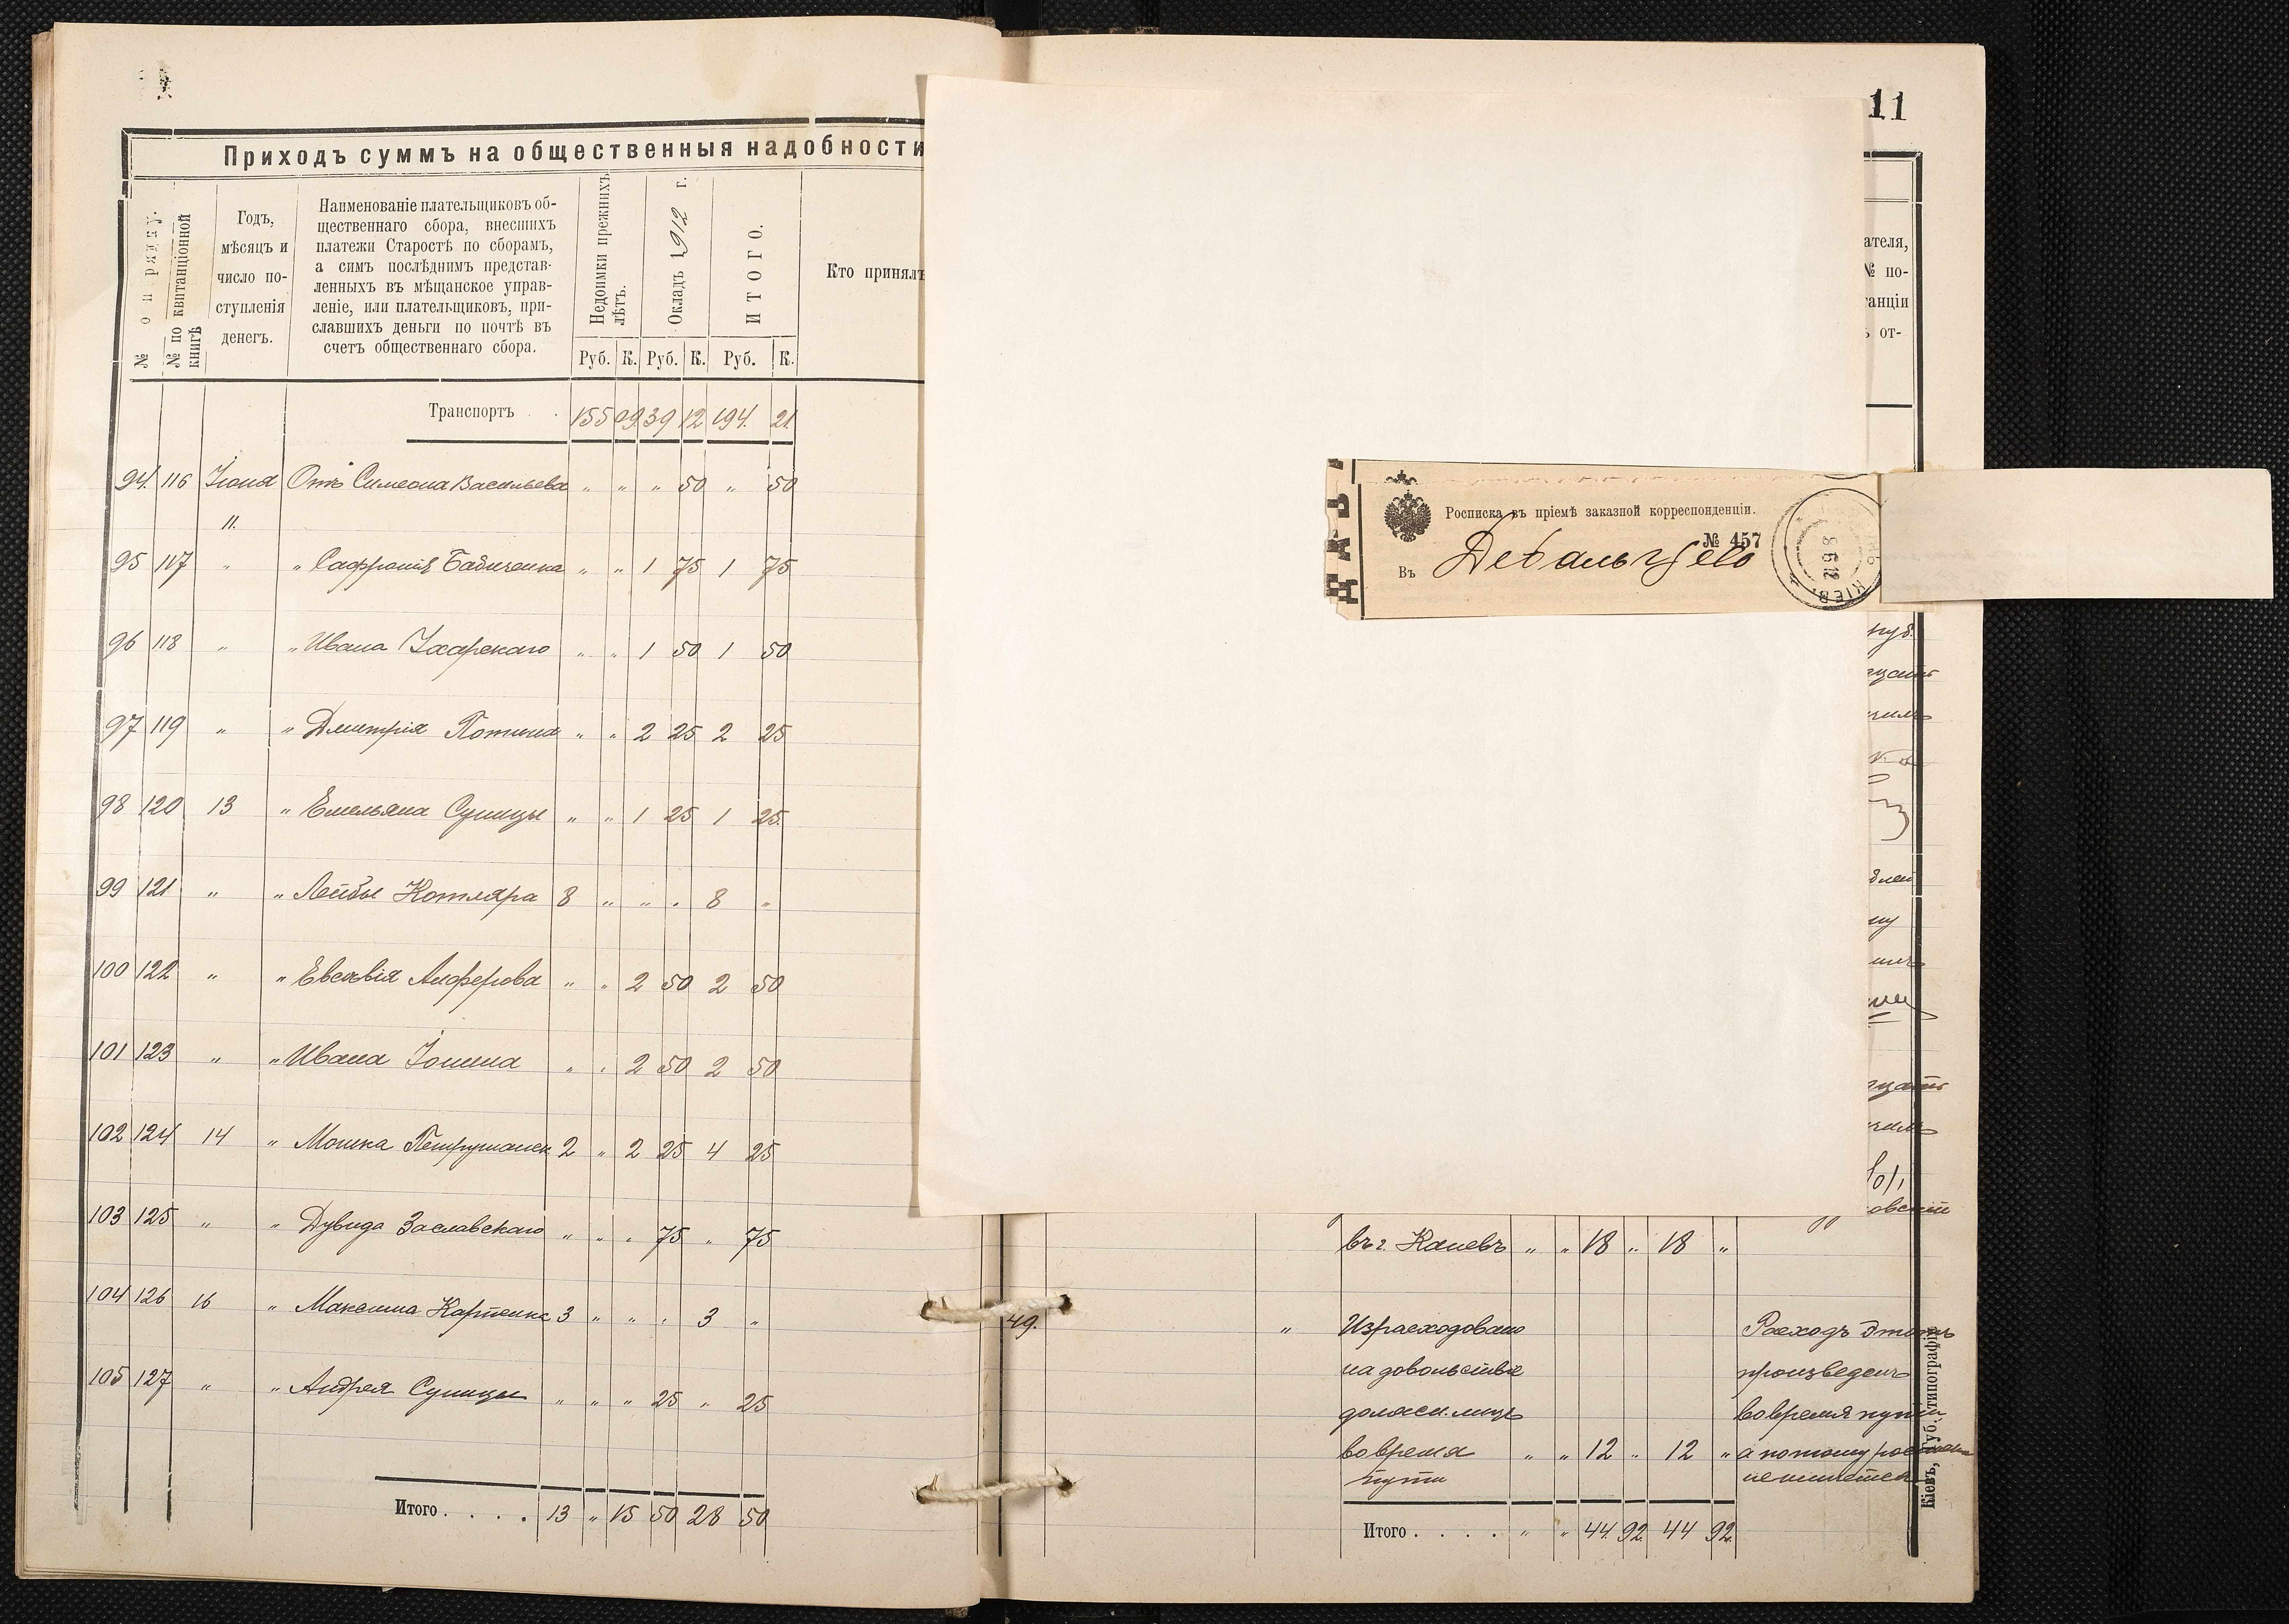 Приходъ суммъ на общественныя надобности
№ по ряду.
№ по квитанціонной книгѣ
Годъ, мѣсяцъ и число поступленія денегъ.
Наименованіе плательщиковъ об-
щественнаго сбора, внесшихъ
платежи Старостѣ по сборамъ,
а симъ послѣднимъ представ-
ленныхъ въ мѣщанское управ-
леніе, или плательщиковъ, при-
славшихъ деньги по почтѣ въ
счетъ общественнаго сбора.
Недоимки прежнихъ лѣтъ.
Окладъ 1912 г.
ИТОГО.
Кто принялъ
Руб. К. Руб. К. Руб. К.
Транспортъ . . 155 09 39 12 194. 21.
94. 116 Іюня Отъ Симеона Васильева " " " 50 " 50
11.
95 117 " " Сафронія Бабиченка " " 1 75 1 75
96 118 " " Ивана " " 1 50 1 50
97 119 " " Дмитрія " " 2 25 2 25
98 120 13 " Емельяна Суницы " " 1 25 1 25.
99 121 " " Лейбы Котляра 8 " " " 8 "
100 122 " " Евсевія Алферова " " 2 50 2 50
101 123 " " Ивана " " 2 50 2 50
102 124 14 " Мошка 2 " 2 25 4 25
103 125 " " Дувида Заславскаго " " " 75 " 75
104 126 16 " Максима Карпенка 3 " " " 3 "
105 127 " " Андрея Суницы " " " 25 " 25
Итого . . . . 13 " 15 50 28 50
11
ателя,
№ по-
танціи
от-
Росписка въ пріемѣ заказной корреспонденціи.
№ 457
Въ Дебальцево
КІЕВ.
8 6 12
въ г. Каневъ " " 18 " 18 "
49. " Израсходовано Расходъ этотъ
на довольствіе произведенъ
должн. лицъ во время пути
во время " " 12 " 12 " а потому
пути
Итого . . . . " " 44. 92. 44 92.
Кіевъ, Губ. типографія